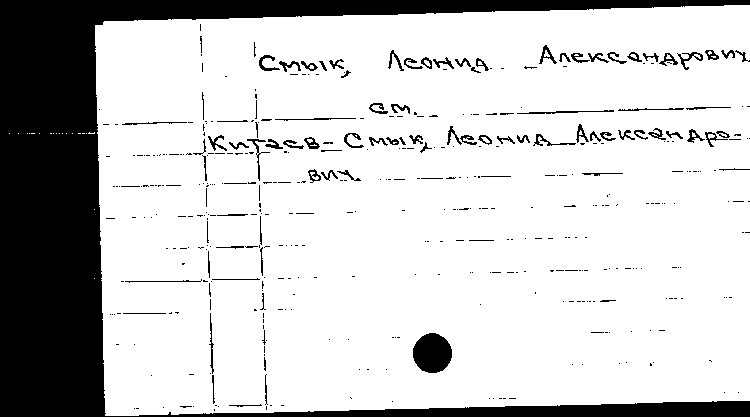 Смык, Леонид Александрович
см.
Китаев-Смык, Леонид Александро-
вич.